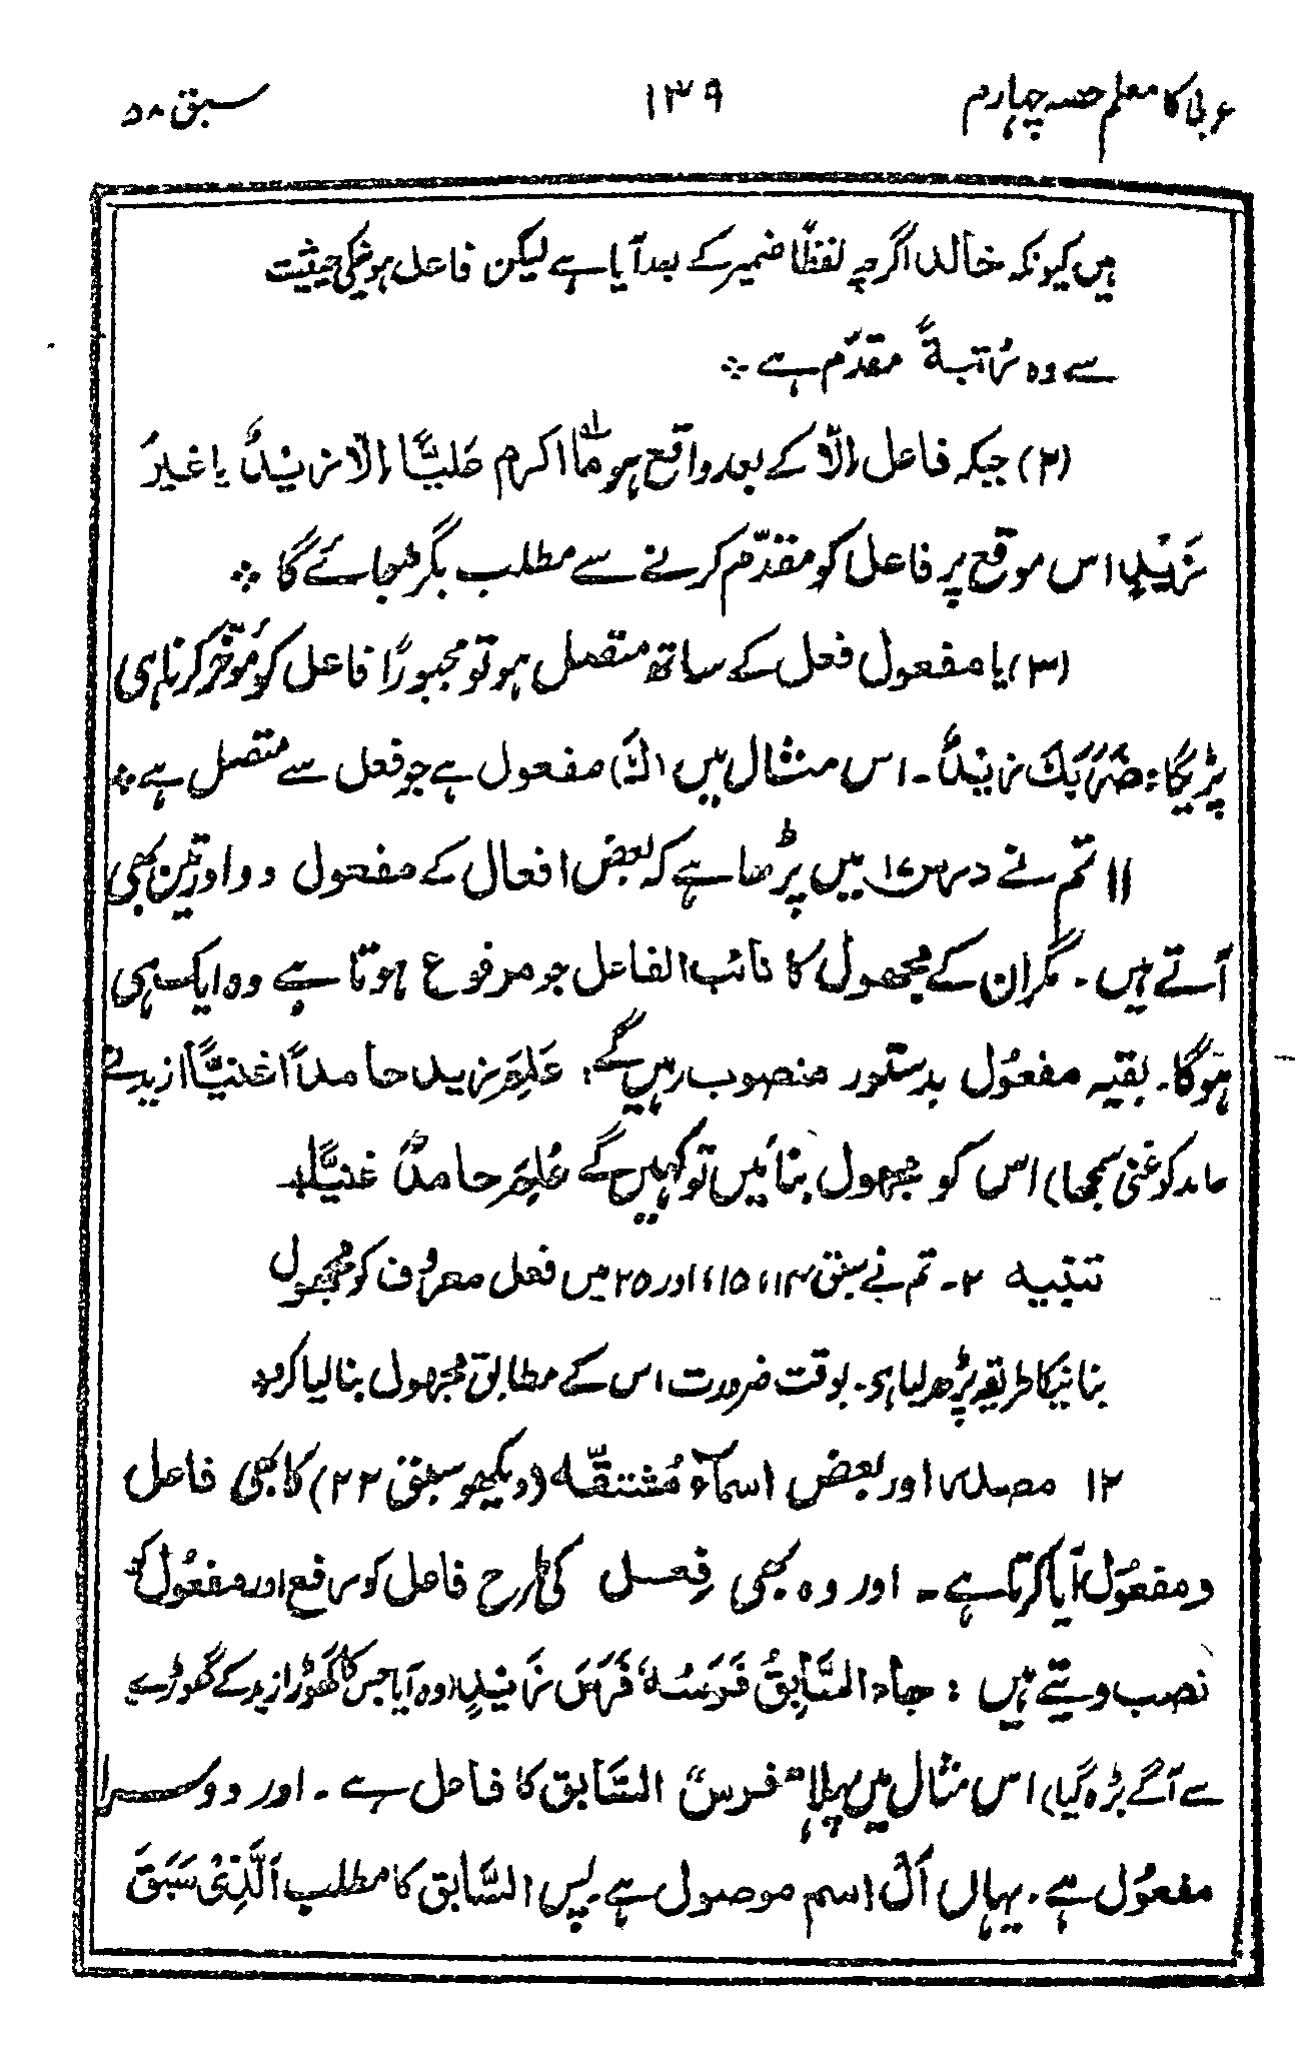 عربی کا معلم حصہ چہارم
۱۳۹
سبق ۵۸
ہیں کیونکہ خالد اگرچہ لفظاً ضمیر کے بعد آیا ہے لیکن فاعل ہونیکی حیثیت
سے وہ رُتبۃً مقدّم ہے ؞
(۲) جبکہ فاعل اِلّا کے بعد واقع ہو مَا اکرم علیًّا اِلّا زیدٌ یا غیرُ
زَیْدٍ اس موقع پر فاعل کو مقدّم کرنے سے مطلب بگڑ جائے گا ؞
(۳) یا مفعول فعل کے ساتھ متصل ہو تو مجبورًا فاعل کو مُؤخّر کرنا ہی
پڑیگا: ضَرَبَكَ زیدٌ ۔ اس مثال میں (كَ) مفعول ہے جو فعل سے متصل ہے ؞
۱۱ تم نے درس ۱۷ میں پڑھا ہے کہ بعض افعال کے مفعول دو اور تین بھی
آتے ہیں ۔ مگر ان کے مجھول کا نائب الفاعل جو مرفوع ہوتا ہے وہ ایک ہی
ہوگا ۔ بقیہ مفعُول بدستور منصوب رہیں گے: عَلِمَ زید حامدًا غنیًّا (زید نے
حامد کو غنی سمجھا) اس کو مجہول بنائیں تو کہیں گے عُلِمَ حامدٌ غنیًّا ۔
تنبیہ ۲۔ تم نے سبق ۱۴، ۱۵، اور ۲۵ میں فعل معروف کو مجہول
بنانیکا طریقہ پڑھ لیا ہو ۔ بوقت ضرورت اس کے مطابق مجہول بنا لیا کرو ؞
۱۲ مصدر اور بعض اسمآء مُشتقّہ (دیکھو سبق ۲۲) کا بھی فاعل
و مفعُول آیا کرتا ہے ۔ اور وہ بھی فِعل کی طرح فاعل کو رفع اور مفعُول کو
نصب دیتے ہیں : جاء السَّابِقُ فَرَسُهٗ فَرَسَ زَیدٍ (وہ آیا جس کا گھوڑا زید کے گھوڑے
سے آگے بڑہ گیا) اس مثال میں پہلا "فرس" السَّابق کا فاعل ہے ۔ اور دوسرا
مفعُول ہے ۔ یہاں اَلْ اسم موصول ہے پس السَّابق کا مطلب اَلَّذِیْ سَبَقَ